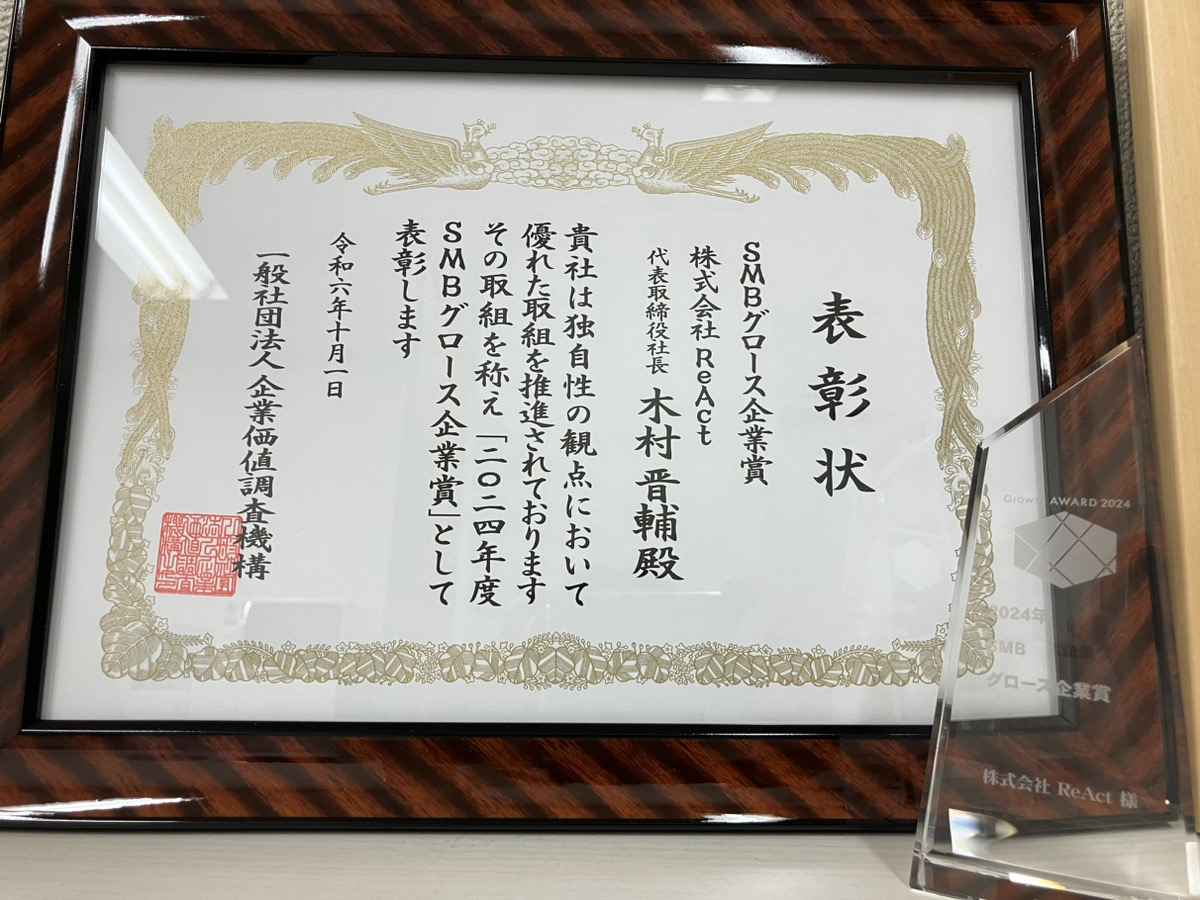 表彰状
SMBグロース企業賞
株式会社 ReAct
代表取締役社長 木村 晋輔 殿
貴社は独自性の観点において
優れた取組を推進されております
その取組を称え「二〇二四年度
SMBグロース企業賞」として
表彰します
令和六年十月一日
一般社団法人 企業価値調査機構
Growth AWARD 2024
2024年
SMB
グロース企業賞
株式会社 ReAct 様